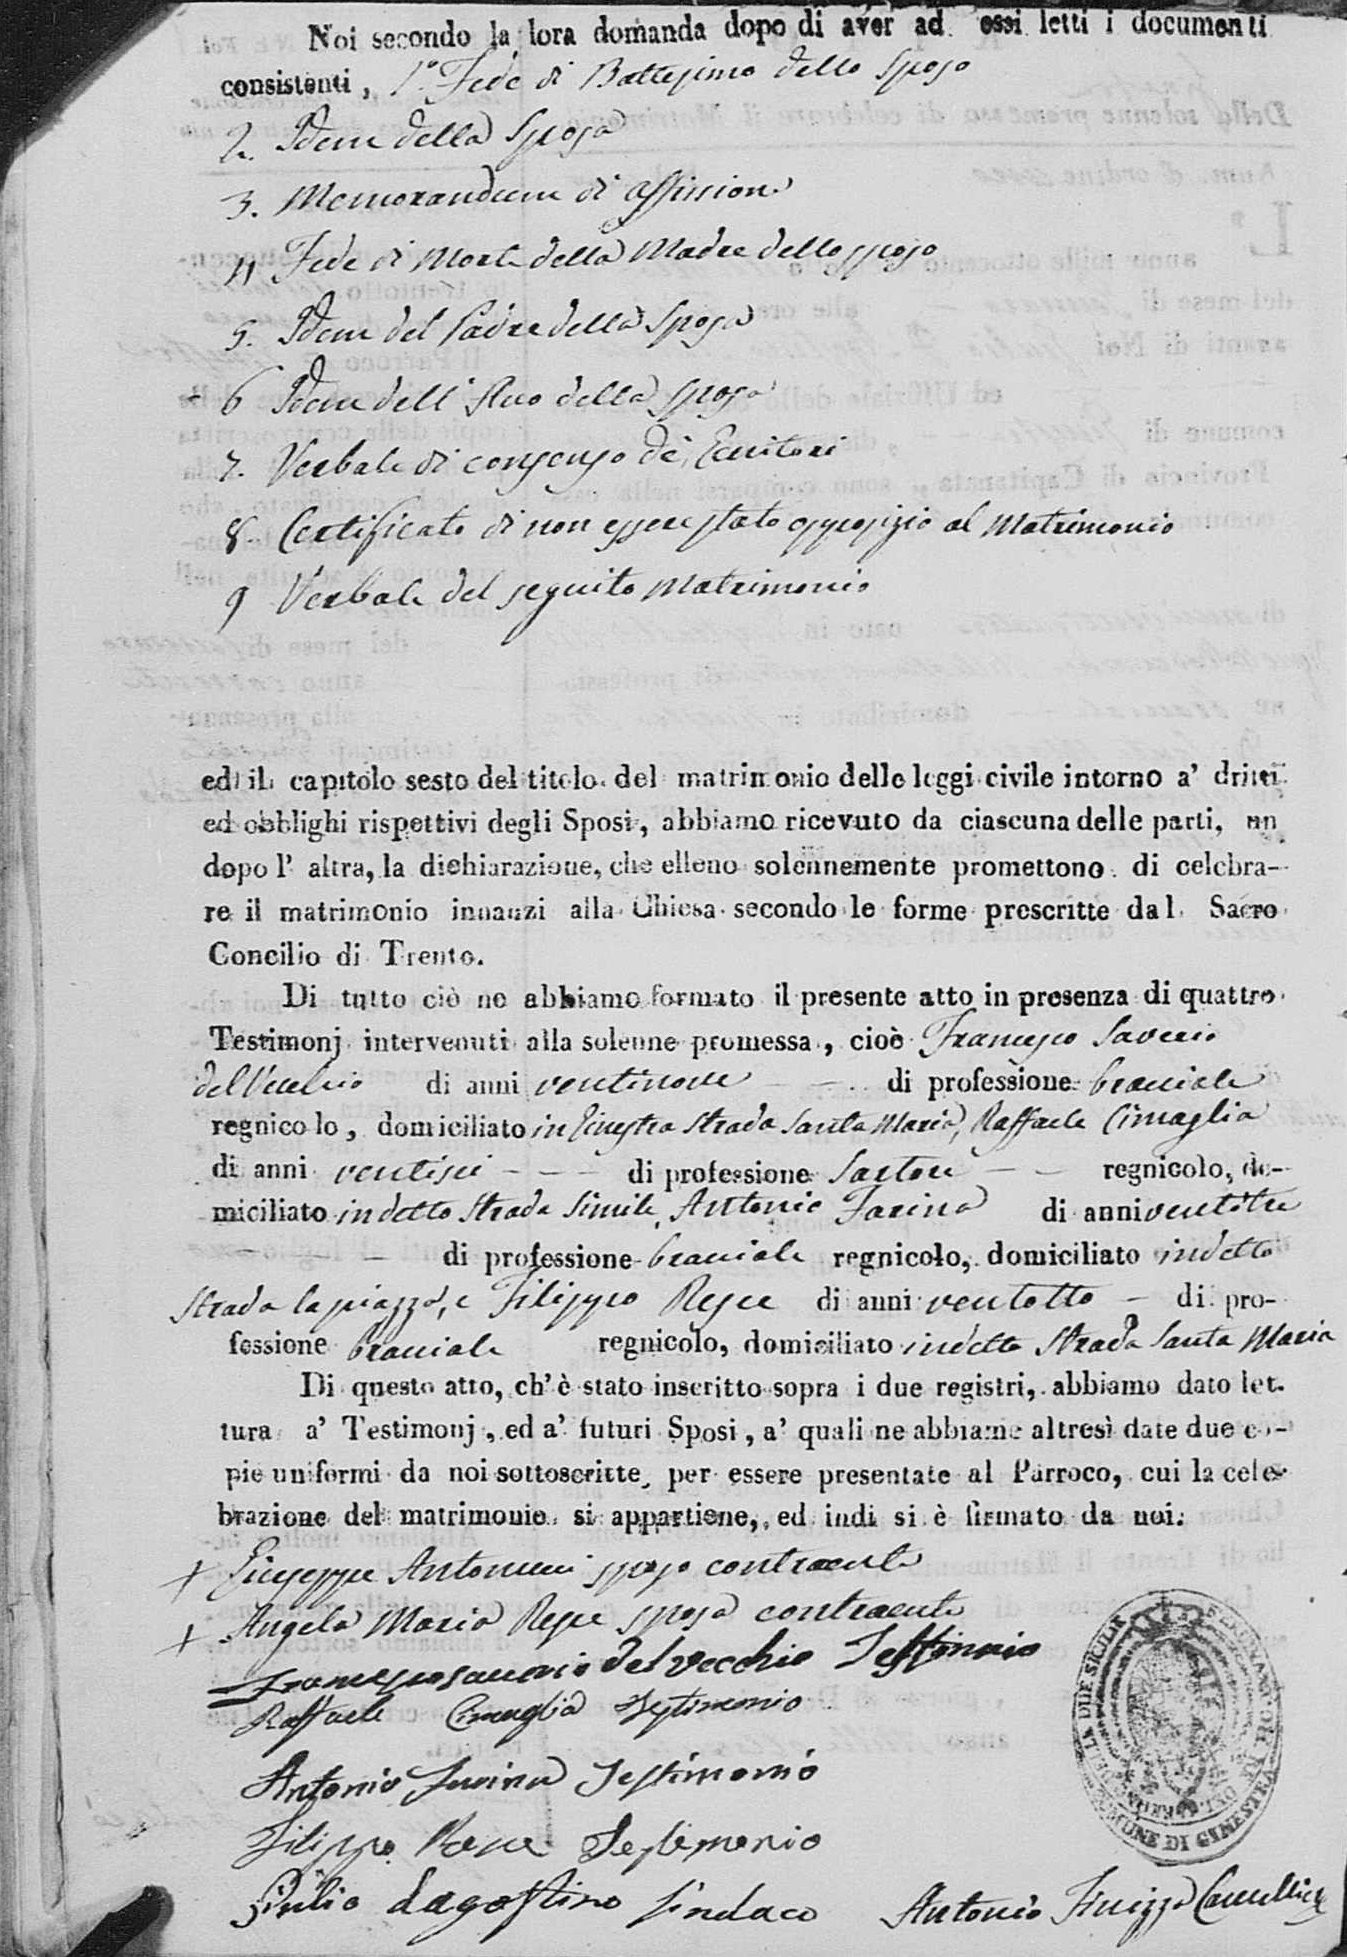 Noi secondo la loro domanda dopo di aver ad essi letti i documenti
consistenti, 1.° Fede di Battesimo dello Sposo
2. Idem della Sposa
3. Memorandum di affissione
4 Fede di Morte della Madre dello sposo
5. Idem del Padre della Sposa
6 Idem dell' Avo della Sposa
7. Verbale di consenso de'
8. Certificato di non essere stato opposizio al Matrimonio
9 Verbale del seguito Matrimonio
ed il capitolo sesto del titolo del matrimonio delle leggi civile intorno a' dritti
ed obblighi rispettivi degli Sposi, abbiamo ricevuto da ciascuna delle parti, un
dopo l' altra, la dichiarazione, che elleno solennemente promettono di celebra-
re il matrimonio innanzi alla Chiesa secondo le forme prescritte dal Sacro
Concilio di Trento.
Di tutto ciò ne abbiamo formato il presente atto in presenza di quattro
Testimonj intervenuti alla solenne promessa, cioè Francesco Saverio
del Vecchio di anni ventinove - - di professione bracciale
regnicolo, domiciliato in Ginestra Strada Santa Maria, Raffaele Cimaglia
di anni ventisei - - - di professione Sartore - - regnicolo, do-
miciliato in detto Strada Simile, Antonio Farina di anni ventitre
- - - di professione bracciale regnicolo, domiciliato in detto
Strada la piazza, e Filippo Resce di anni ventotto - di pro-
fessione bracciale regnicolo, domiciliato in detto Strada Santa Maria
Di questo atto, ch' è stato inscritto sopra i due registri, abbiamo dato let-
tura a' Testimonj, ed a' futuri Sposi, a' quali ne abbiame altresì date due co-
pie uniformi da noi sottoscritte, per essere presentate al Parroco, cui la cele-
brazione del matrimonio si appartiene, ed indi si è firmato da noi.
+ Giuseppe Antonucci sposo contraente
+ Angela Maria Resce sposa contraente
Francesco Saverio del Vecchio Testimonio
Raffaele Cimaglia Testimonio
Antonio Farina Testimonio
Filippo Resce Testimonio
Giulio Dagostino Sindaco Antonio Cancelliere
COMUNE DI GINESTRA